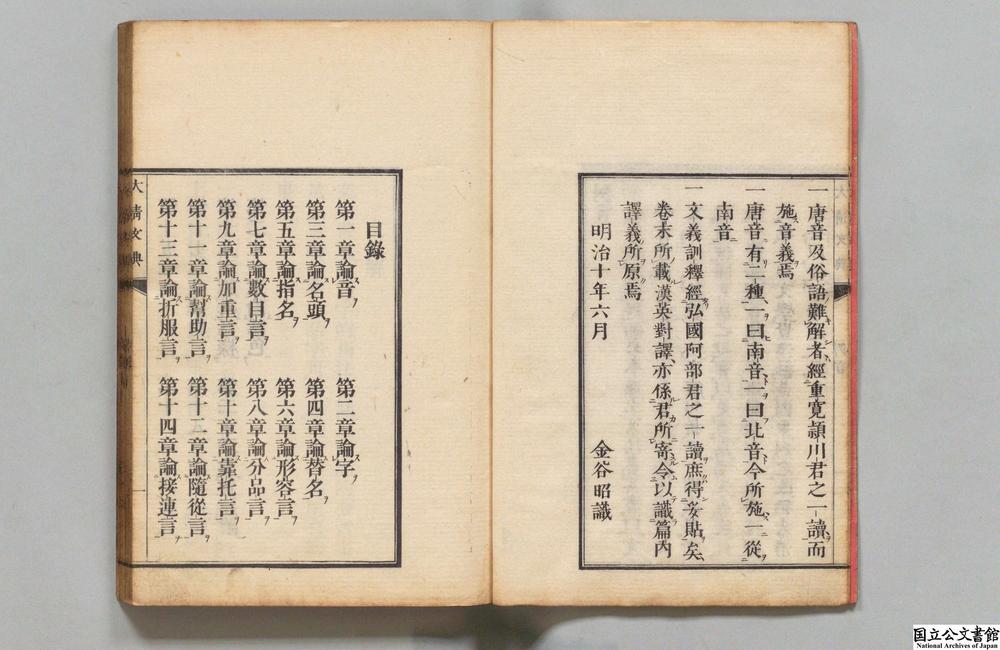 一唐音及俗語難解者經重寬頴川君之一讀而
施音義焉
一唐音有二種一曰南音一曰北音今所施一從
南音
一文義訓釋經弘國阿部君之一讀庶得妥貼矣
卷末所載漢英對譯亦係君所寄令以識篇內
譯義所原焉
明治十年六月 金谷昭識
目錄
第一章論音 第二章論字
第三章論名頭 第四章論替名
第五章論指名 第六章論形容言
第七章論數目言 第八章論分品言
第九章論加重言 第十章論靠托言
第十一章論幫助言 第十二章論隨從言
第十三章論折服言 第十四章論接連言
大淸文典
一
国立公文書館
National Archives of Japan